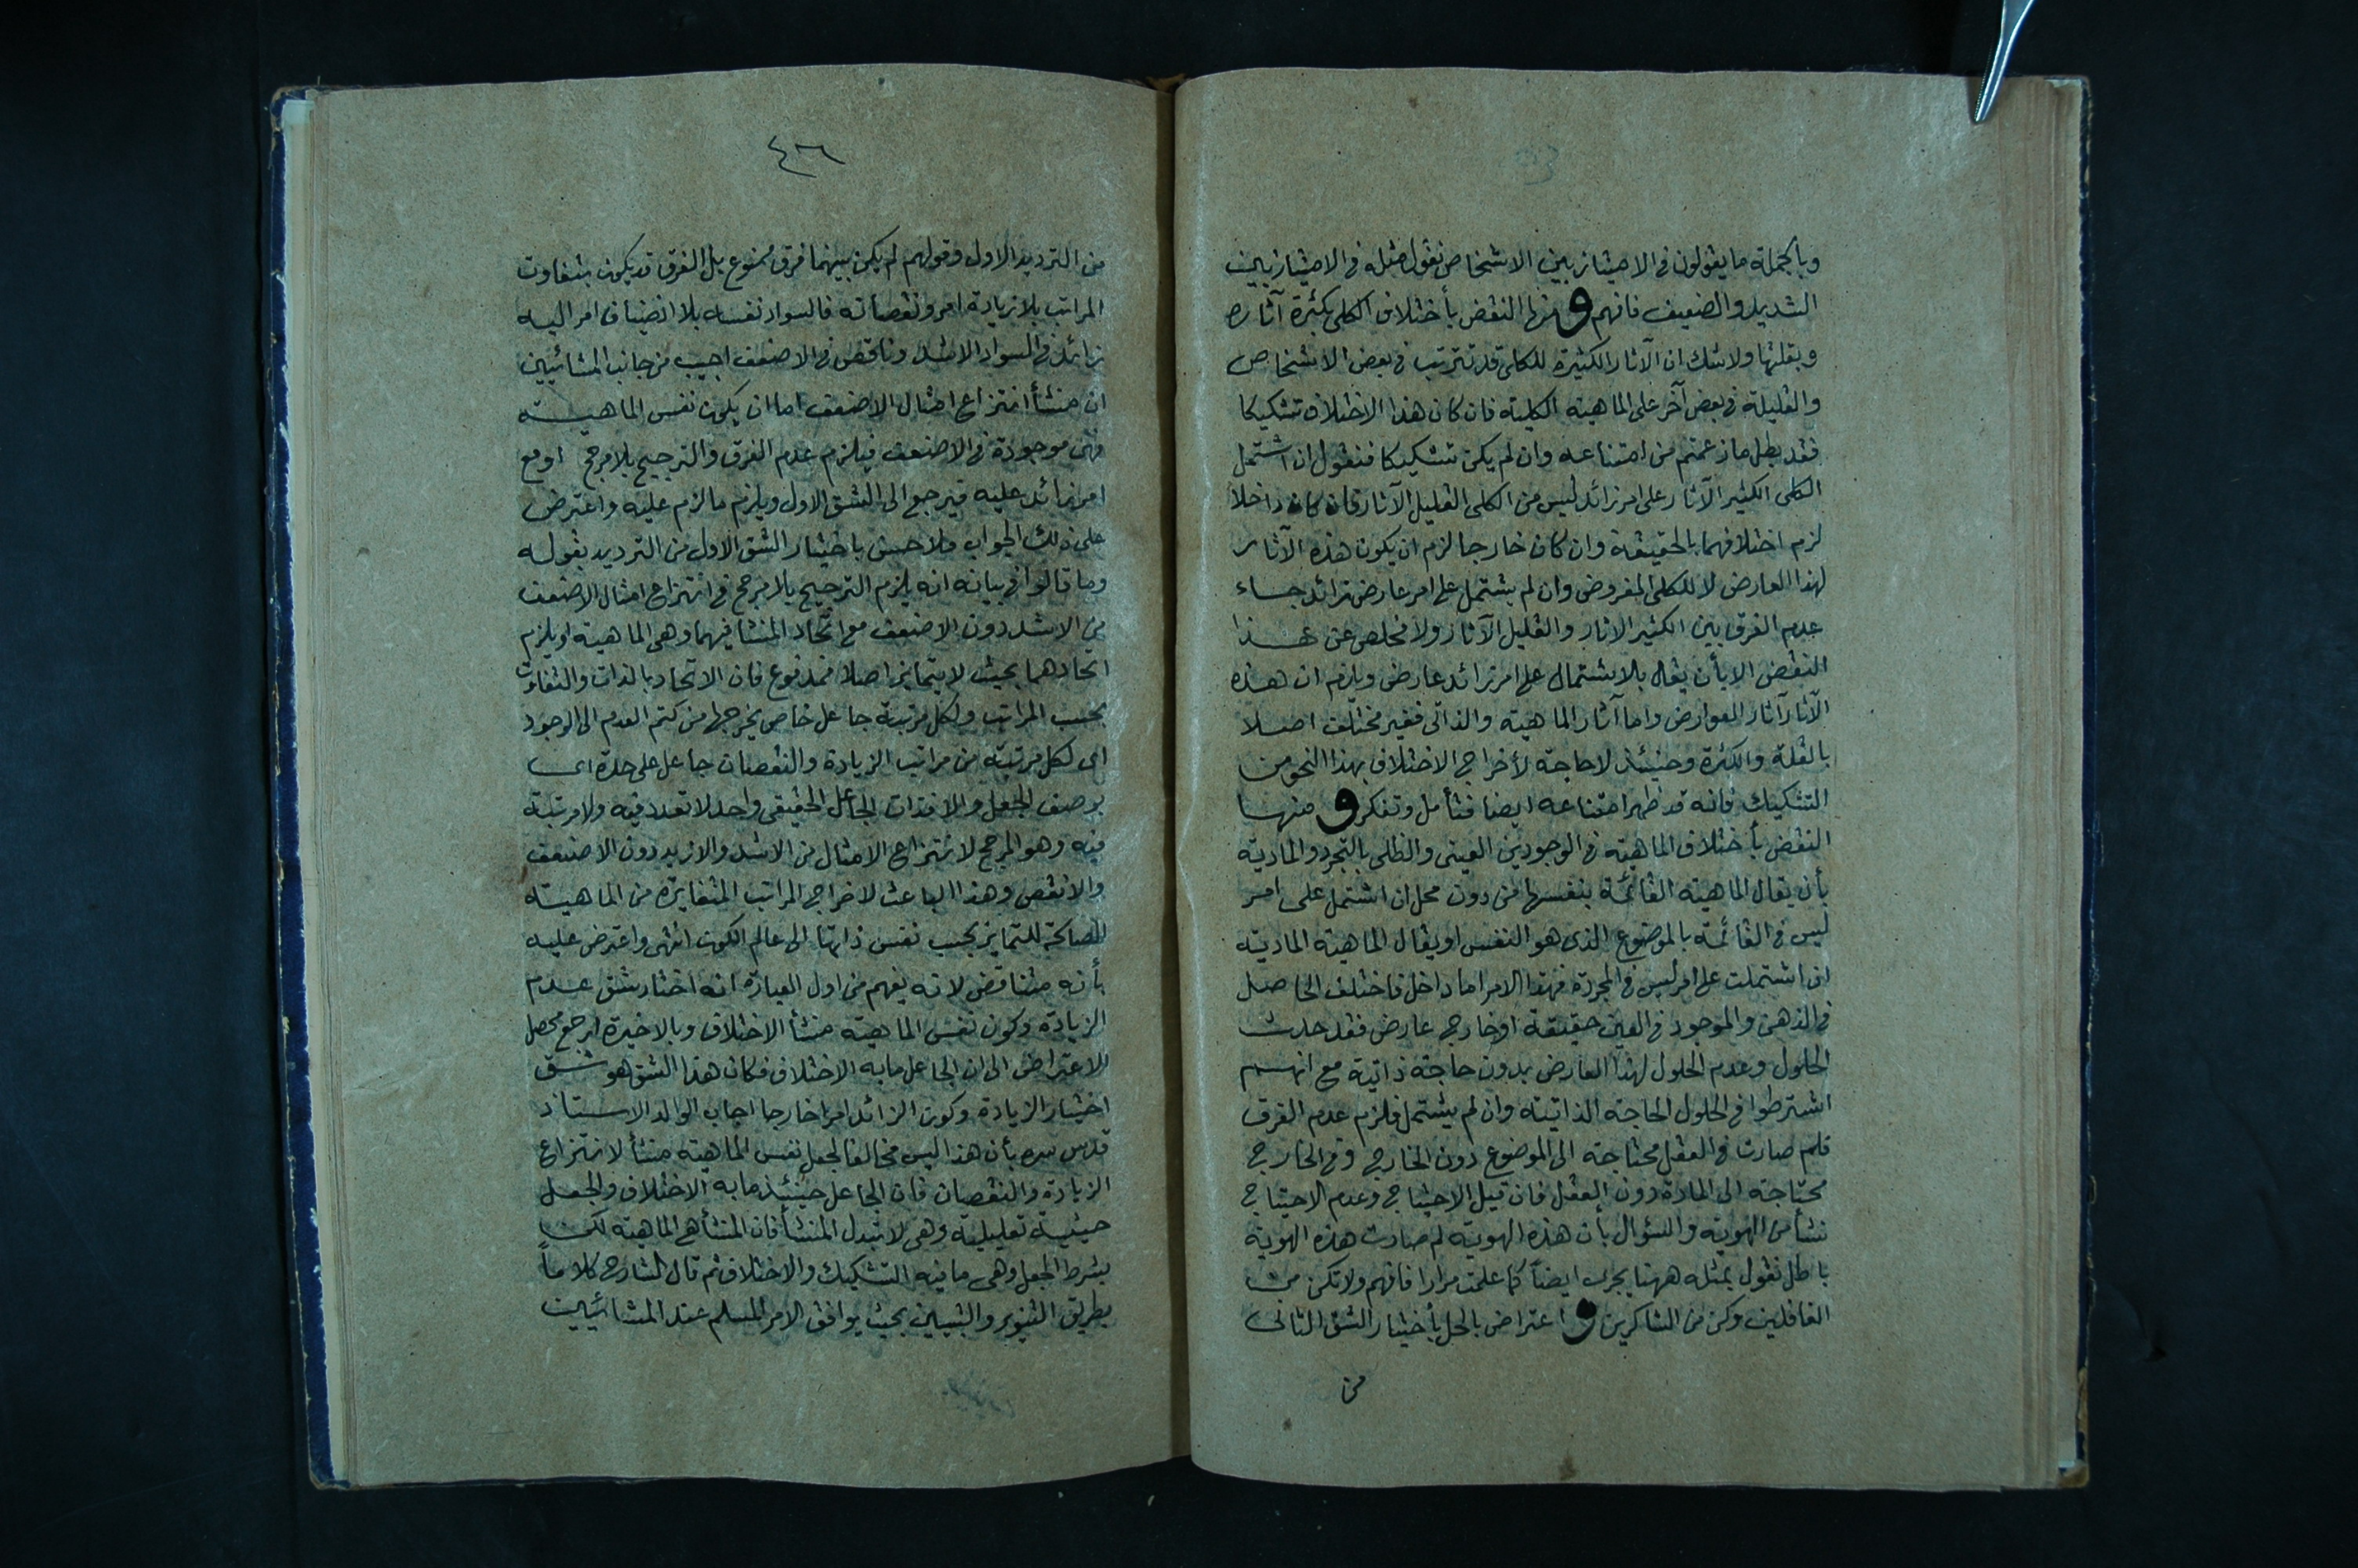 وبالجملة ما يقولون في الامتياز بين الاشخاص نقول مثله في الامتياز بين
الشديد والضعيف فافهم و منها النقض بأختلاف الكلى بكثرة آثاره
وبقلتها ولا شك ان الآثار الكثيرة للكلى قد تترتب في بعض الاشخاص
والقليلة في بعض آخر على الماهية الكلية فان كان هذا الاختلاف تشكيكا
فقد بطل ما زعمتم من امتناعه وان لم يكن تشكيكا فنقول ان اشتمل
الكلى الكثير الآثار على امر زائد ليس من الكلى القليل الآثار فان كان داخلا
لزم اختلافهما بالحقيقة وان كان خارجا لزم ان يكون هذه الآثار
لهذا العارض لا للكلى المفروض وان لم يشتمل على امر عارض زائد جاء
عدم الفرق بين الكثير الاثار والقليل الآثار ولا مخلص عن هذا
النقض الا بأن يقال بالاشتمال على امر زائد عارض ويلزم ان هذه
الآثار آثار العوارض واما آثار الماهية والذاتى فغير مختلف اصلا
بالقلة والكثرة وحينئذ لا حاجة لأخراج الاختلاف بهذا النحو من
التشكيك فانه قد ظهر امتناعه ايضا فتأمل وتفكر و منها
النقض بأختلاف الماهية في الوجودين العينى والظلى بالتجرد والمادية
بأن يقال الماهية القائمة بنفسها من دون محل ان اشتمل على امر
ليس في القائمة بالموضوع الذى هو النفس او يقال الماهية المادية
ان اشتملت على امر ليس في المجردة فهذا الامر اما داخل فاختلف الحاصل
في الذهن والموجود في العين حقيقة او خارج عارض فقد حدث
الحلول وعدم الحلول لهذا العارض بدون حاجة ذاتية مع انهم
اشترطوا في الحلول الحاجة الذاتية وان لم يشتمل فلزم عدم الفرق
فلم صارت في العقل محتاجة الى الموضوع دون الخارج وفى الخارج
محتاجة الى المادة دون العقل فان قيل الاحتياج وعدم الاحتياج
نشأ من الهوية والسؤال بأن هذه الهوية لم صارت هذه الهوية
باطل نقول بمثله ههنا يجرى ايضا كما علمت مرارا فافهم ولا تكن من
الغافلين وكن من الشاكرين و اعتراض بالحل بأختيار الشق الثانى
من
٤٣٦
من الترديد الاول وقولهم لم يكن بينهما فرق ممنوع بل الفرق قد يكون بتفاوت
المراتب بلا زيادة امر ونقصانه فالسواد نفسه بلا انضياف امر اليه
زائد في السواد الاشد وناقص في الاضعف اجيب من جانب المشائيين
ان منشأ انتزاع امثال الاضعف اما ان يكون نفس الماهية
فهى موجودة في الاضعف فيلزم عدم الفرق والترجيح بلا مرجح او مع
امر زائد عليه فيرجع الى الشق الاول ويلزم ما لزم عليه واعترض
على ذلك الجواب ملا حسن باختيار الشق الاول من الترديد بقوله
وما قالوا في بيانه انه يلزم الترجيح بلا مرجح في انتزاع امثال الاضعف
من الاشد دون الاضعف مع اتحاد المنشا فيهما وهى الماهية او يلزم
اتحادهما بحيث لا يتمايز اصلا فمدفوع فان الاتحاد بالذات والتفاوت
بحسب المراتب ولكل مرتبة جاعل خاص يخرجها من كتم العدم الى الوجود
اى لكل مرتبة من مراتب الزيادة والنقصان جاعل على حدة اى
بوصف الجعل والا فذات الجاعل الحقيقى واحد لا تعدد فيه ولا مرتبة
فيه وهو المرجح لانتزاع الامثال من الاشد والازيد دون الاضعف
والانقص وهذا الباعث لاخراج المراتب المتغايرة من الماهية
الصالحة للتمايز بحسب نفس ذاتها الى عالم الكون انتهى واعترض عليه
بأنه متناقض لانه يفهم من اول العبارة انه اختار شق عدم
الزيادة وكون نفس الماهية منشأ الاختلاف وبالاخيرة ارجع محصل
الاعتراض الى ان الجاعل ما به الاختلاف فكان هذا الشق هو شق
اختيار الزيادة وكون الزائد امرا خارجا اجاب الوالد الاستاذ
قدس سره بأن هذا ليس مخالفا لجعل نفس الماهية منشأ لانتزاع
الزيادة والنقصان فان الجاعل حينئذ ما به الاختلاف والجعل
حيثية تعليلية وهى لا تبدل المنشأ فان المنشأ هى الماهية لكن
بشرط الجعل وهى ما فيه التشكيك والاختلاف ثم قال الشارح كلاماً
بطريق التنوير والتبيين بحيث يوافق الامر المسلم عند المشائيين